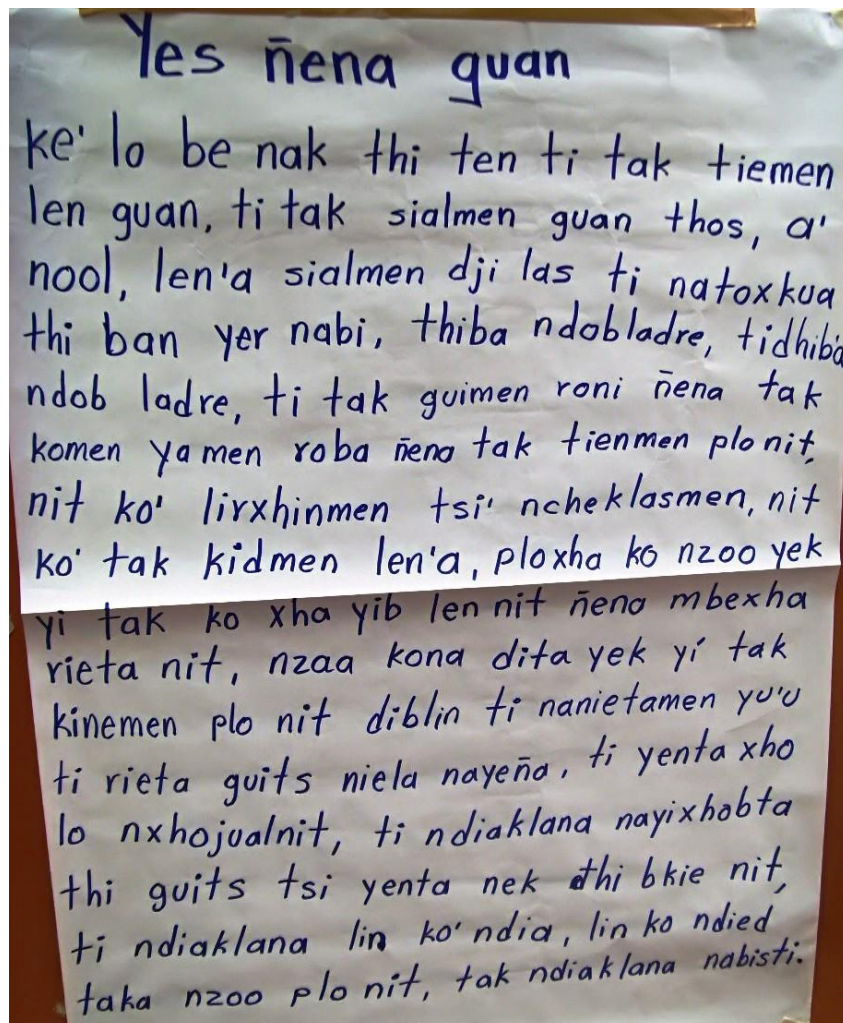 Yes ñena guan
ke' lo be nak thi ten ti tak tiemen
len guan, ti tak sialmen guan thos, a'
nool, len'a sialmen dji las ti natoxkua
thi ban yer nabi, thiba ndobladre, tidhiba
ndob ladre, ti tak guimen roni ñena tak
komen yamen roba ñena tak tienmen plonit,
nit ko' lirxhinmen tsi' ncheklasmen, nit
ko' tak kidmen len'a, ploxha ko nzoo yek
yi tak ko xha yib len nit ñena mbexha
rieta nit, nzaa kona dita yek yi tak
kinemen plo nit diblin ti nanietamen yu'u
ti rieta guits niela nayeña, ti yenta xho
lo nxhojualnit, ti ndiaklana nayixhobta
thi guits tsi yenta nek thi bkie nit,
ti ndiaklana lin ko' ndia, lin ko ndied
taka nzoo plo nit, tak ndiaklana nabisti.